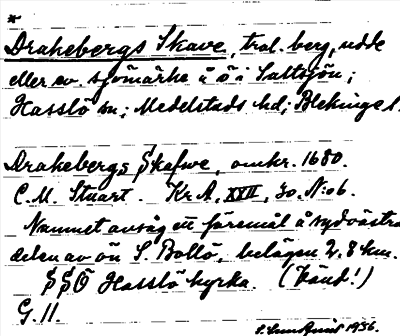 *
Drakebergs Skave, trol. berg, udde
eller ev. sjömärke å ö i Saltsjön;
Hasslö sn; Medelstads hd; Blekinge l.
Drakebergs Skafwe, omkr. 1680.
C.M. Stuart. Kr.A, XVII, 30. N:o 6.
Namnet avsåg ett föremål å sydvästra
delen av ön S. Bollö, belägen 2,8 km.
SSÖ Hasslö kyrka. (Känd!)
G. 11.
1936.